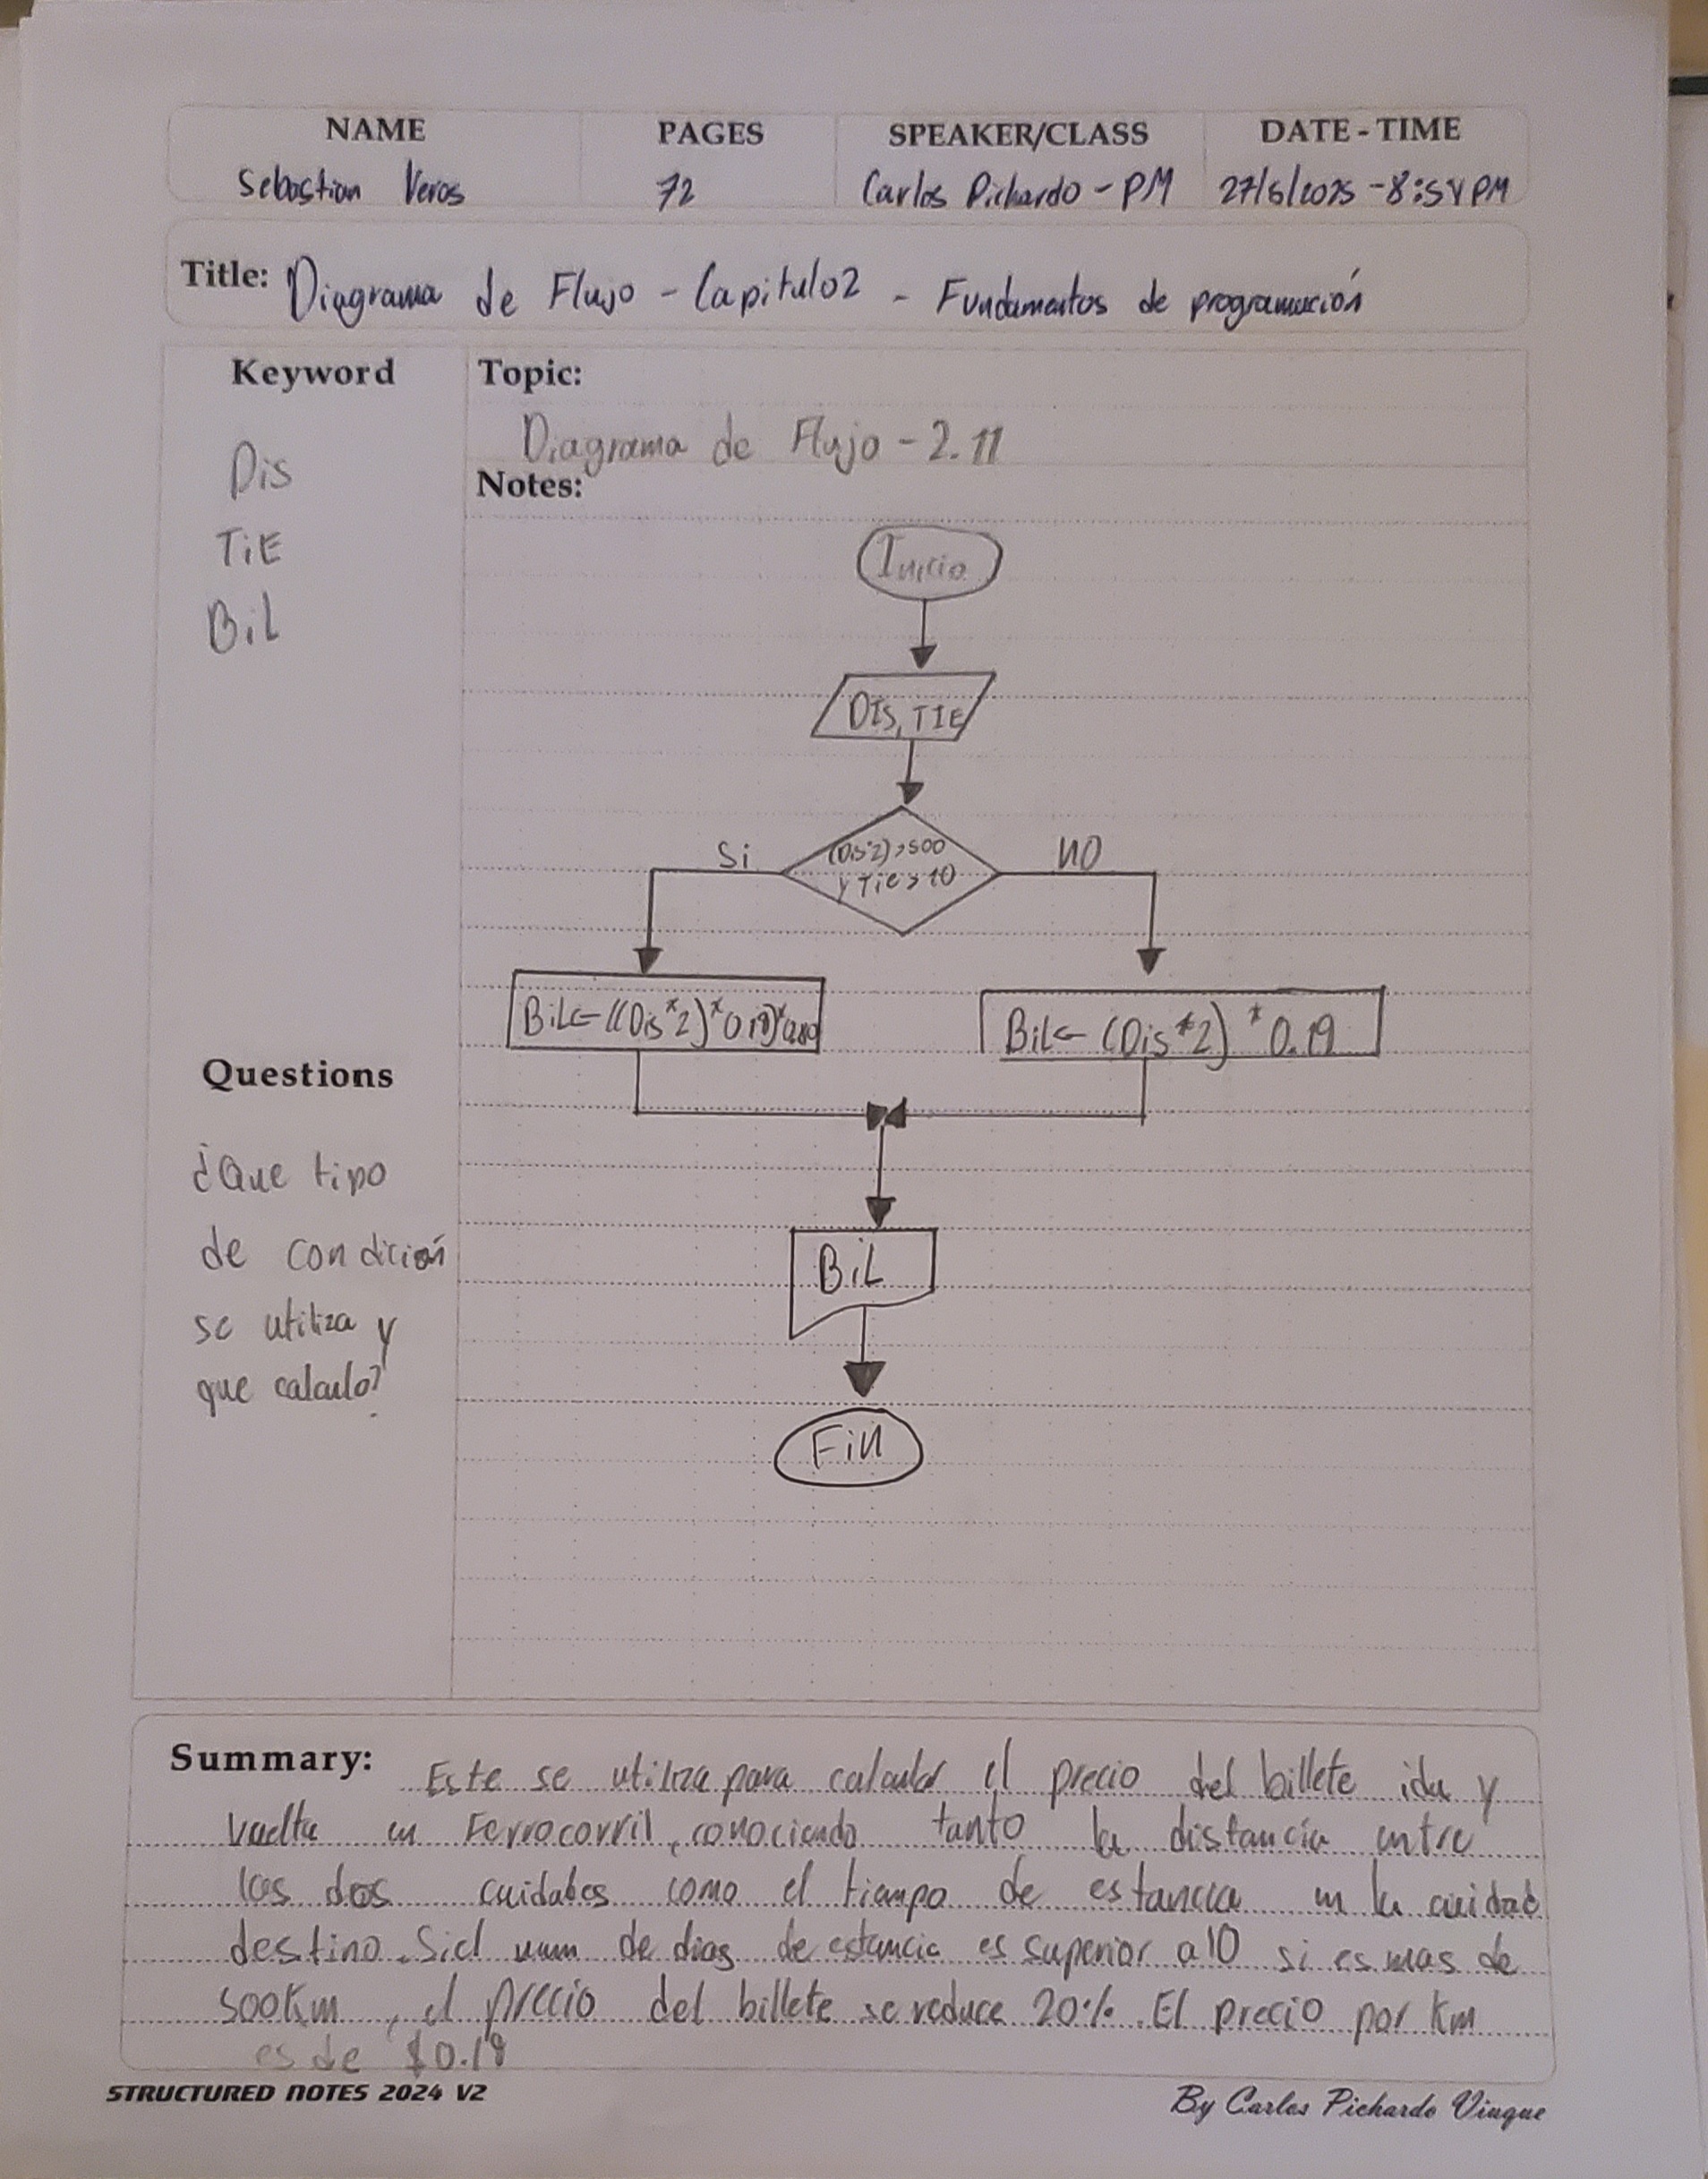 NAME PAGES SPEAKER/CLASS DATE - TIME
Sebastian Veras 72 Carlos Pichardo - PM 27/5/2025 - 8:54 PM
Title: Diagrama de Flujo - Capitulo 2 - Fundamentos de programación
Keyword
Dis
TiE
BiL
Topic:
Diagrama de Flujo - 2.11
Notes:
Inicio
DIS, TIE
(Dis*2) > 500
y Tie > 10
Si
NO
BiL <- ((Dis*2)*0.19)*0.80
BiL <- (Dis*2) * 0.19
BiL
FiN
Questions
¿Que tipo
de condición
se utiliza y
que calculo?
Summary: Este se utiliza para calcular el precio del billete ida y
vuelta en Ferrocorril, conociendo tanto la distancia entre
las dos cuidades como el tiempo de estancia en la cuidad
destino. Si el num de dias de estancia es superior a 10 si es mas de
500Km, el precio del billete se reduce 20%. El precio por Km
es de $0.19
STRUCTURED NOTES 2024 V2
By Carlos Pichardo Viuque